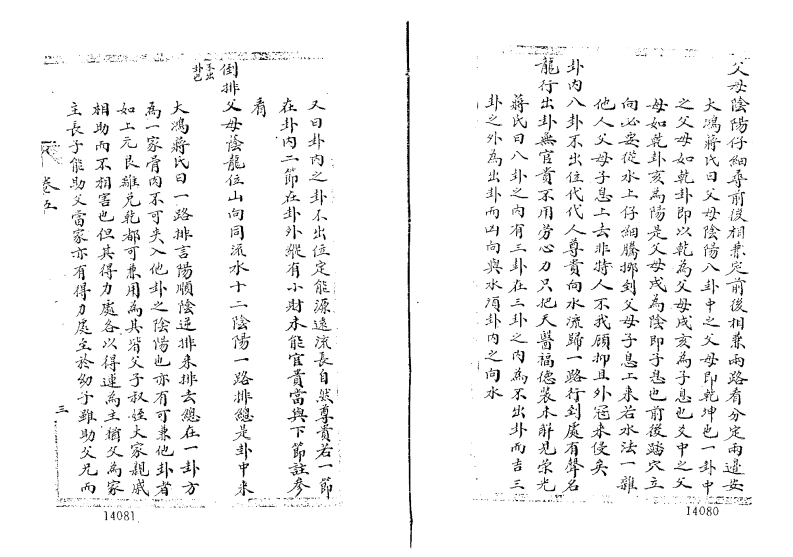 父母陰陽仔細尋前後相兼定前後相兼兩路看分定兩邊安
大鴻蔣氏曰父母陰陽八卦中之父母即乾坤也一卦中
之父母如乾卦即以乾為父母戌亥為子息也爻中之父
母如乾卦亥為陽是父母戌為陰即子息也前後踏穴立
向必要從水上仔細騰挪到父母子息上来若水法一雜
他人父母子息上去非特人不我顧抑且外冠来侵矣
卦内八卦不出位代代人尊貴向水流歸一路行到處有聲名
龍行出卦無官貴不用勞心力只把天醫福德裝未解見榮光
蔣氏曰八卦之内有三卦在三卦之内為不出卦而吉三
卦之外為出卦而凶向與水須卦内之向水
14080
又曰卦内之卦不出位定能源遠流長自然尊貴若一節
在卦内二節在卦外縱有小財未能官貴當與下節註参
看
倒排父母蔭龍位山向同流水十二陰陽一路排總是卦中来
不出卦也
大鴻蔣氏曰一路排言陽順陰逆排来排去總在一卦方
為一家骨肉不可夾入他卦之陰陽也亦有可兼他卦者
如上元艮離兌乾都可兼用為其皆父子叔姪大家親戚
相助而不相害也但其得力處各以得運為主猶父為家
主長子能助父當家亦有得力處至於幼子雖助父兄而
卷五
三
14081